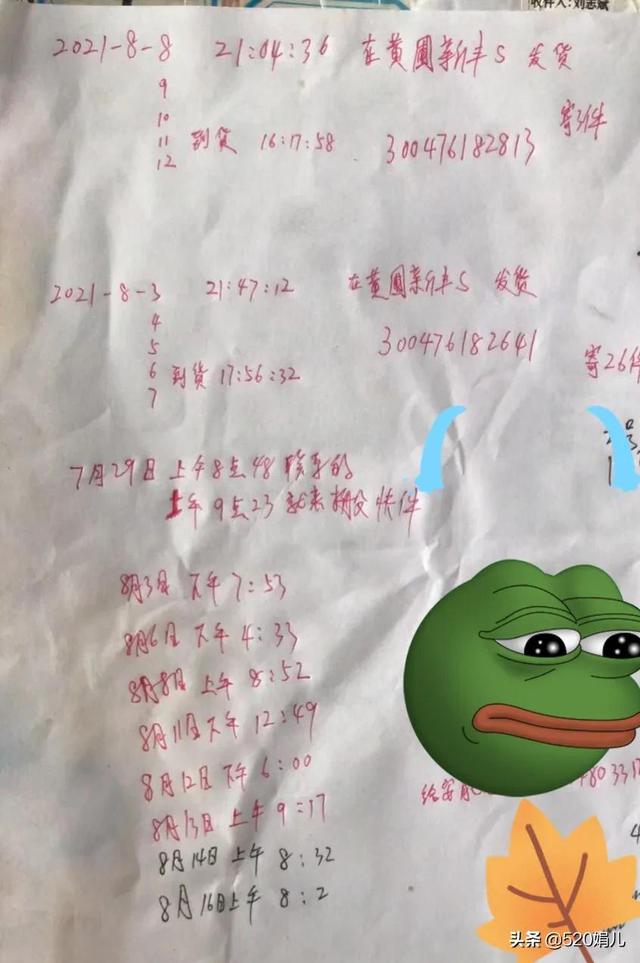 收件人:刘志斌
2021-8-8 21:04:36 在黄圃新丰S 发货
9
10
11 到货 16:17:58 300476182813 寄3件
12
2021-8-3 21:47:12 在黄圃新丰S 发货
4
5 300476182641
6 到货 17:56:32 寄26件
7
7月29日 上午8点48
上午9点23 就来 快件
8月3日 下午7:53
8月6日 下午4:33
8月8日 上午8:52
8月11日下午12:49
8月12日下午6:00
8月13日上午9:17
8月14日上午8:32
8月16日上午8:2
头条 @520娟儿